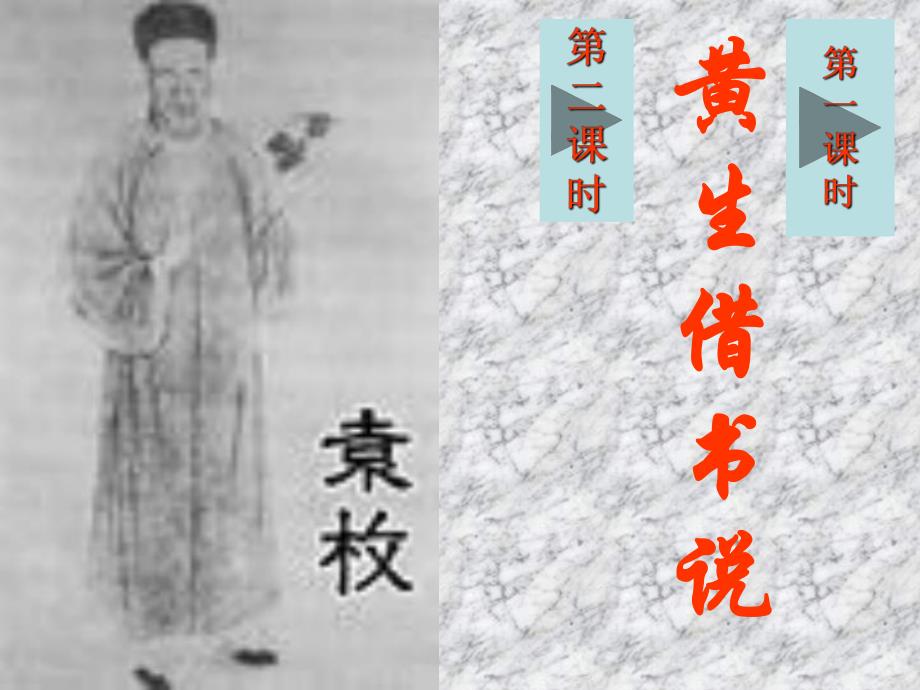 第一课时
黄生借书说
第二课时
袁枚